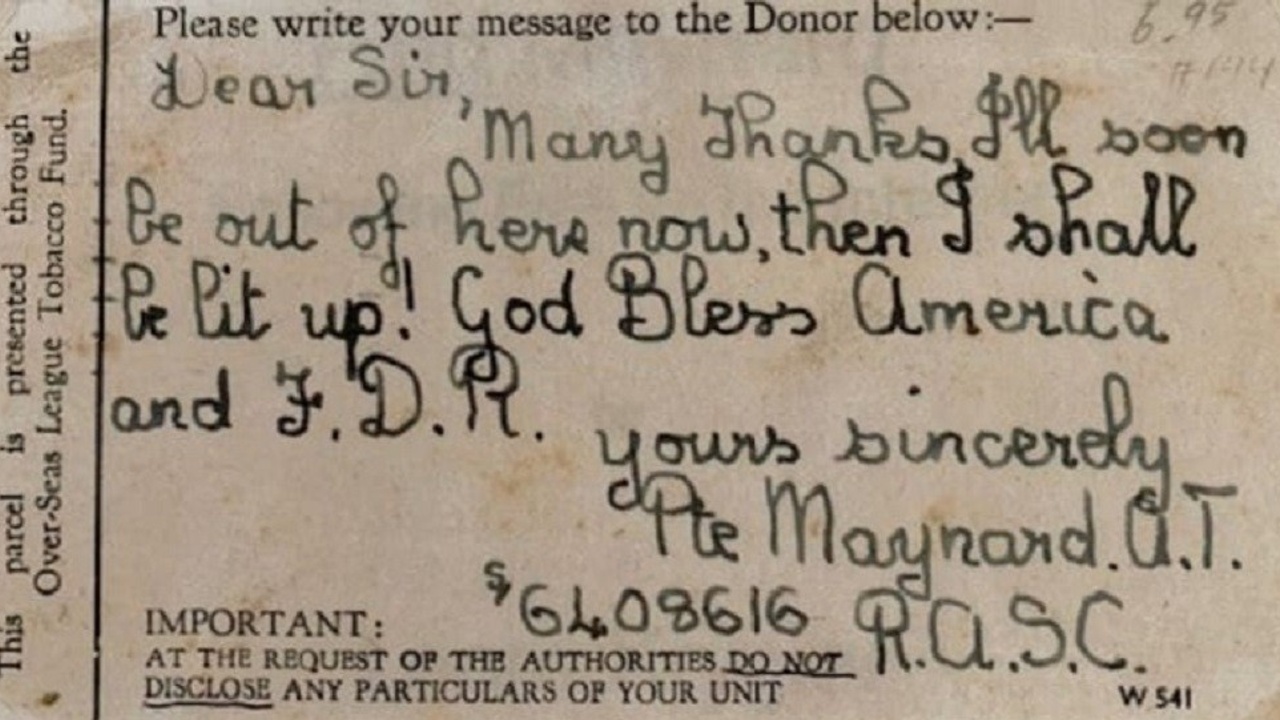 This parcel is presented through the
Over-Seas League Tobacco Fund.
Please write your message to the Donor below:—
6.95
Dear Sir,
'Many Thanks, I'll soon
be out of here now, then I shall
be lit up! God Bless America
and F.D.R.
yours sincerely
Pte Maynard. A.T.
S/6408616 R.A.S.C.
IMPORTANT:
AT THE REQUEST OF THE AUTHORITIES DO NOT
DISCLOSE ANY PARTICULARS OF YOUR UNIT
W 541